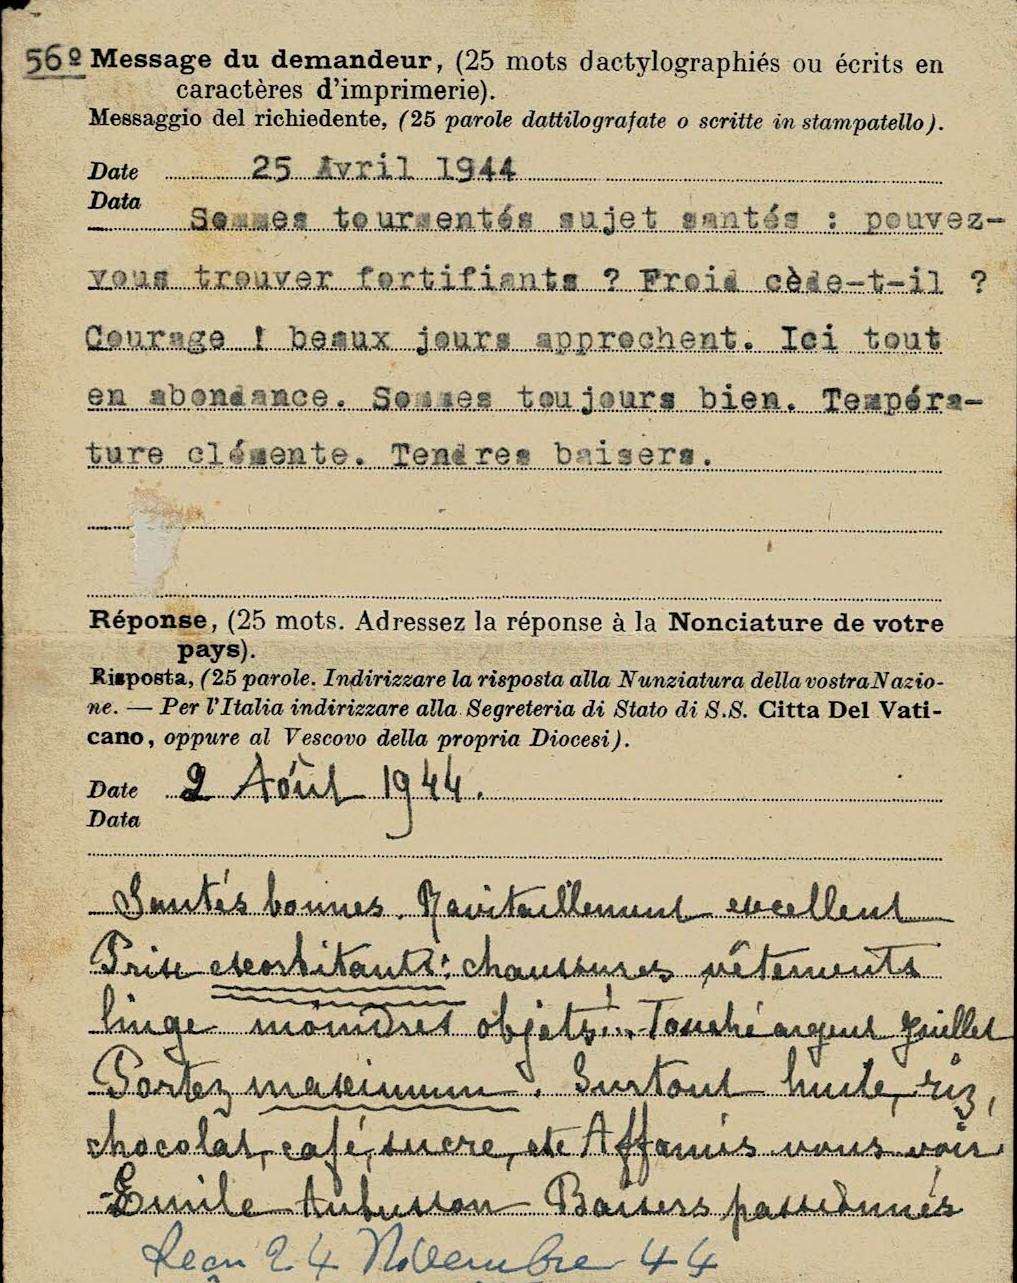 56º Message du demandeur, (25 mots dactylographiés ou écrits en
caractères d'imprimerie).
Messaggio del richiedente, (25 parole dattilografate o scritte in stampatello).
Date 25 Avril 1944
Data
Sommes tourmentés sujet santés : pouvez-
vous trouver fortifiants ? Froid cède-t-il ?
Courage ! beaux jours approchent. Ici tout
en abondance. Sommes toujours bien. Tempéra-
ture clémente. Tendres baisers.
Réponse, (25 mots. Adressez la réponse à la Nonciature de votre
pays).
Risposta, (25 parole. Indirizzare la risposta alla Nunziatura della vostra Nazio-
ne. — Per l'Italia indirizzare alla Segreteria di Stato di S.S. Citta Del Vati-
cano, oppure al Vescovo della propria Diocesi).
Date 2 Août 1944.
Data
Santés bonnes. Ravitaillement excellent
Prix exorbitants: chaussures vêtements
linge moindres objets!.. Touché argent Juillet
Portez maximum. Surtout huile, riz,
chocolat, café, sucre, etc Affamés vous voir
Emile Aubusson Baisers passionnés
24 Novembre 44